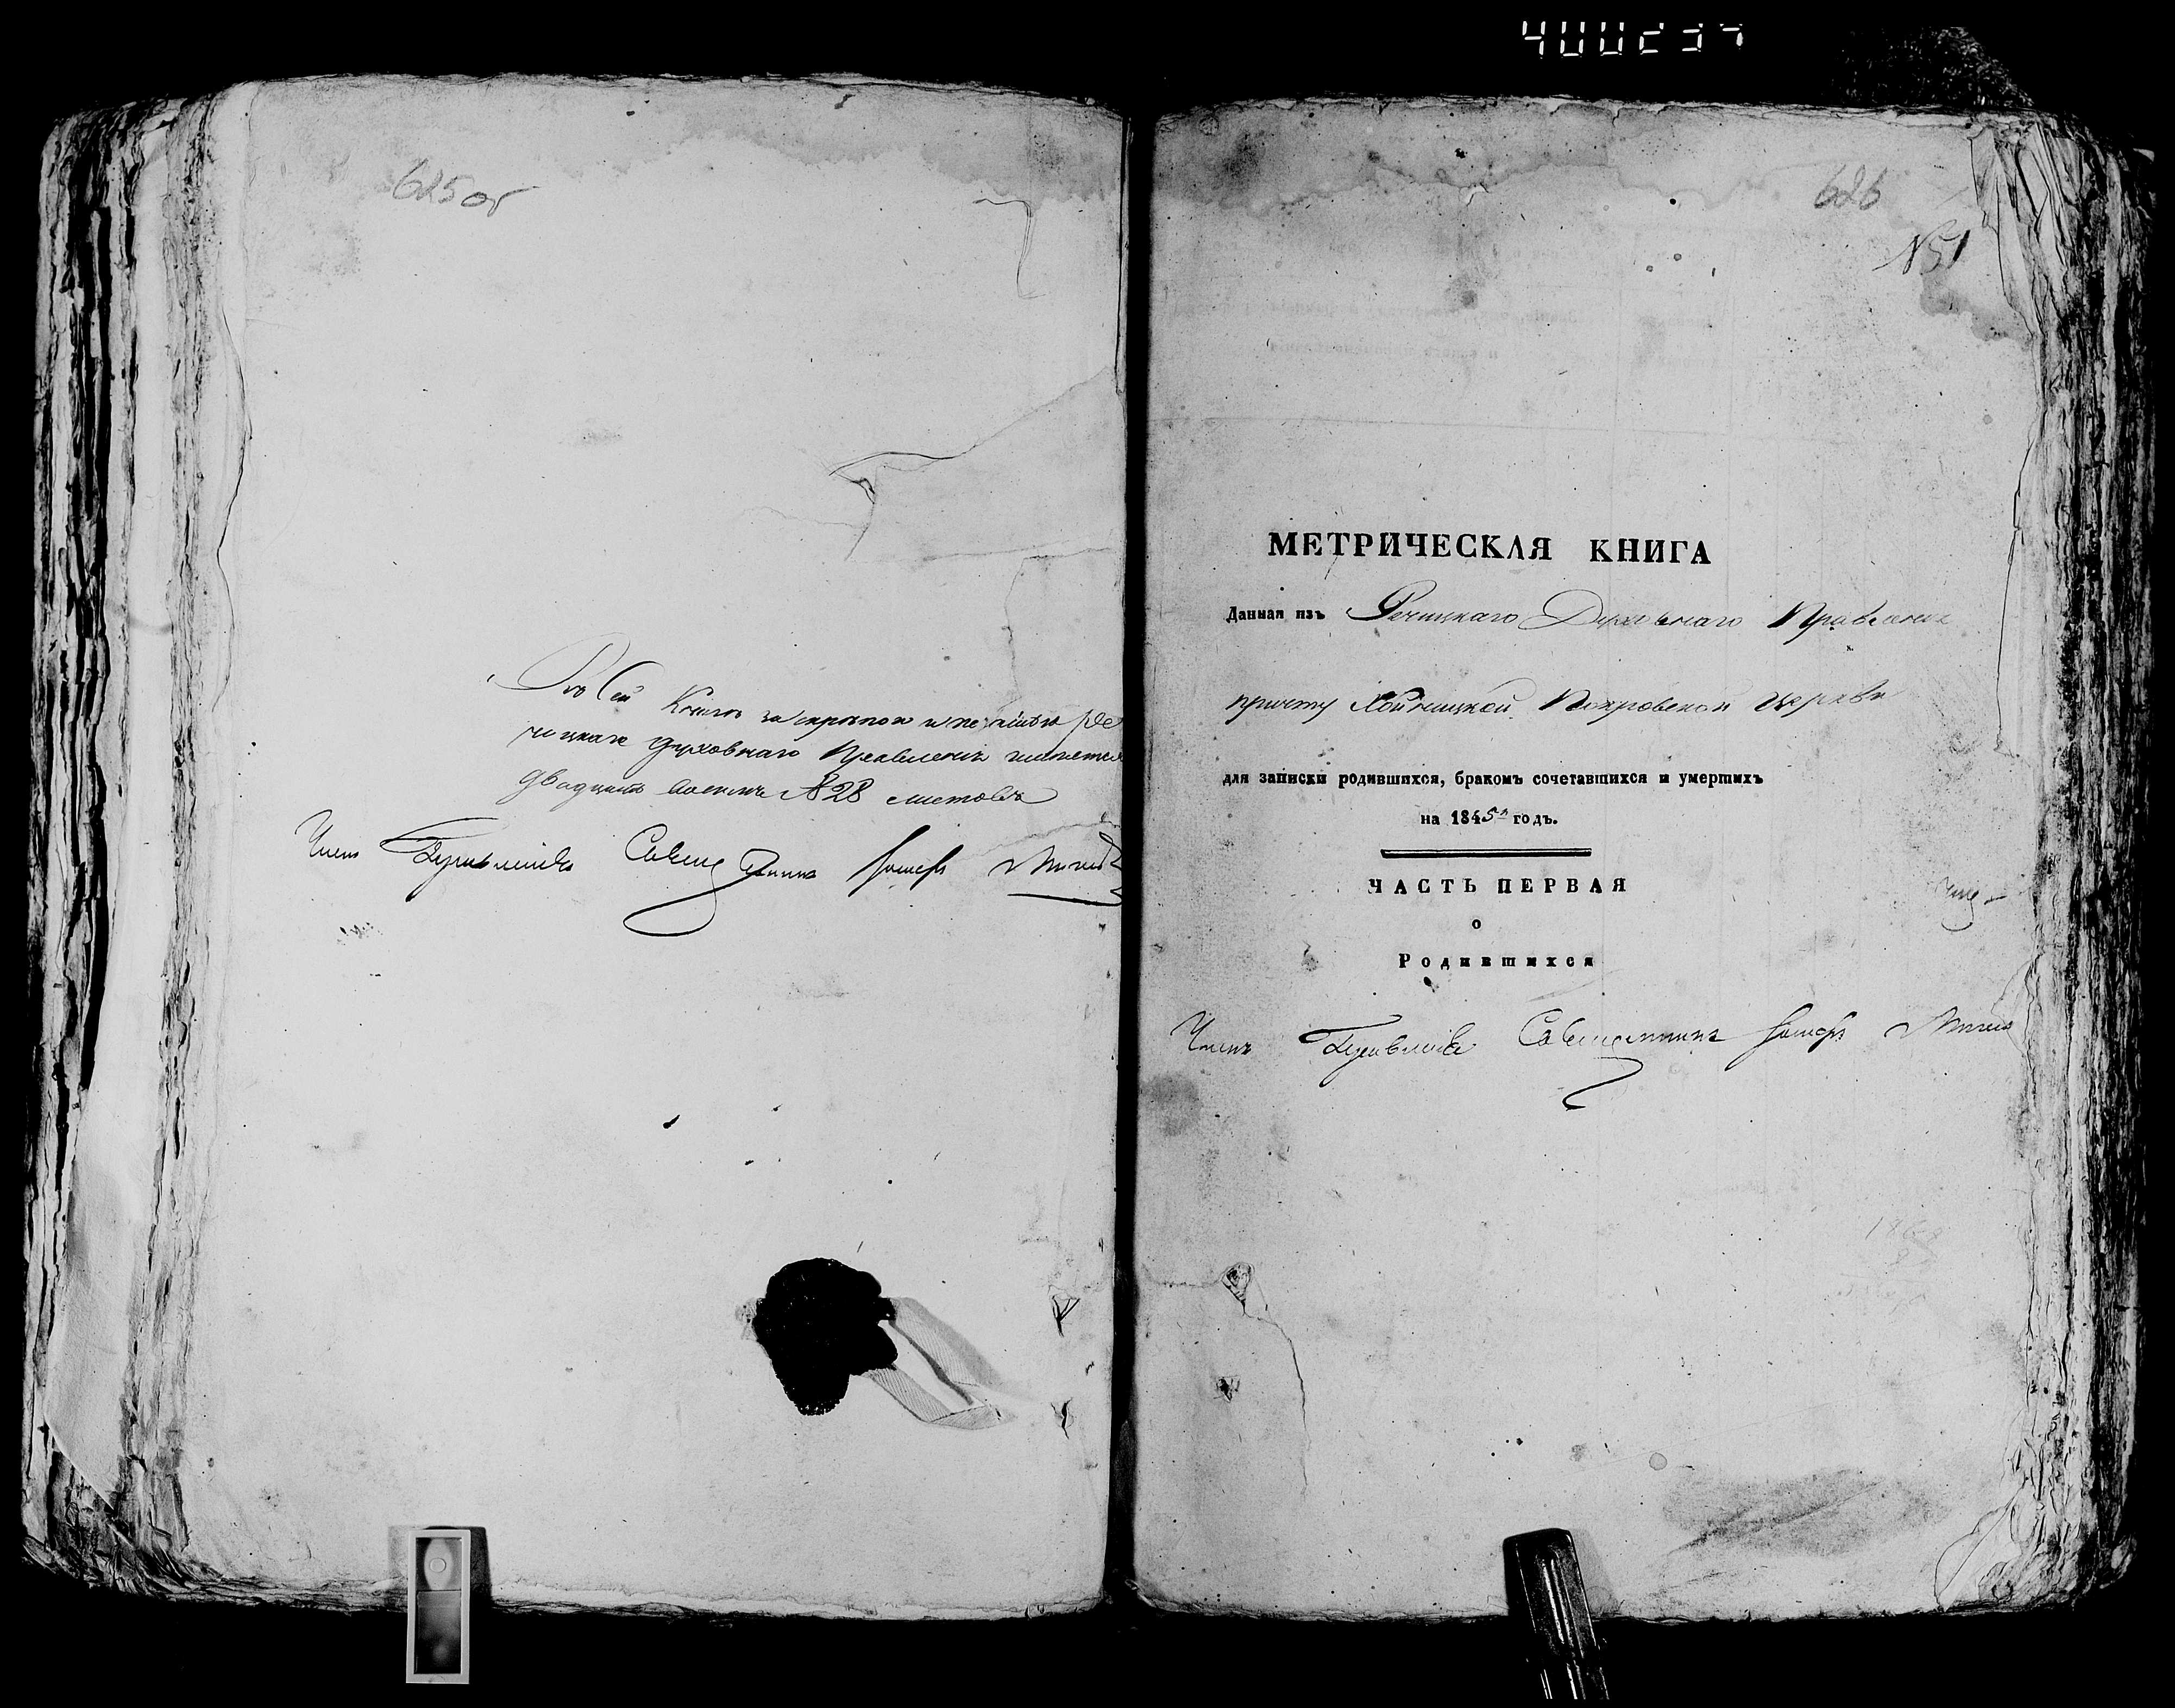 4000239
625 об
Въ сей Книгѣ за скрѣпою и печатью Ре
чицкаго Духовнаго Правленія числится
двадцать восемь № 28 листовъ
Членъ Правленія Священникъ
626
№ 51
МЕТРИЧЕСКАЯ КНИГА
Данная изъ Речицкаго Духовнаго Правленія
причту Хойницкой Покровской Церкви
для записки родившихся, бракомъ сочетавшихся и умершихъ
на 1845й годъ.
ЧАСТЬ ПЕРВАЯ
о
Родившихся
Членъ Правленія Священникъ